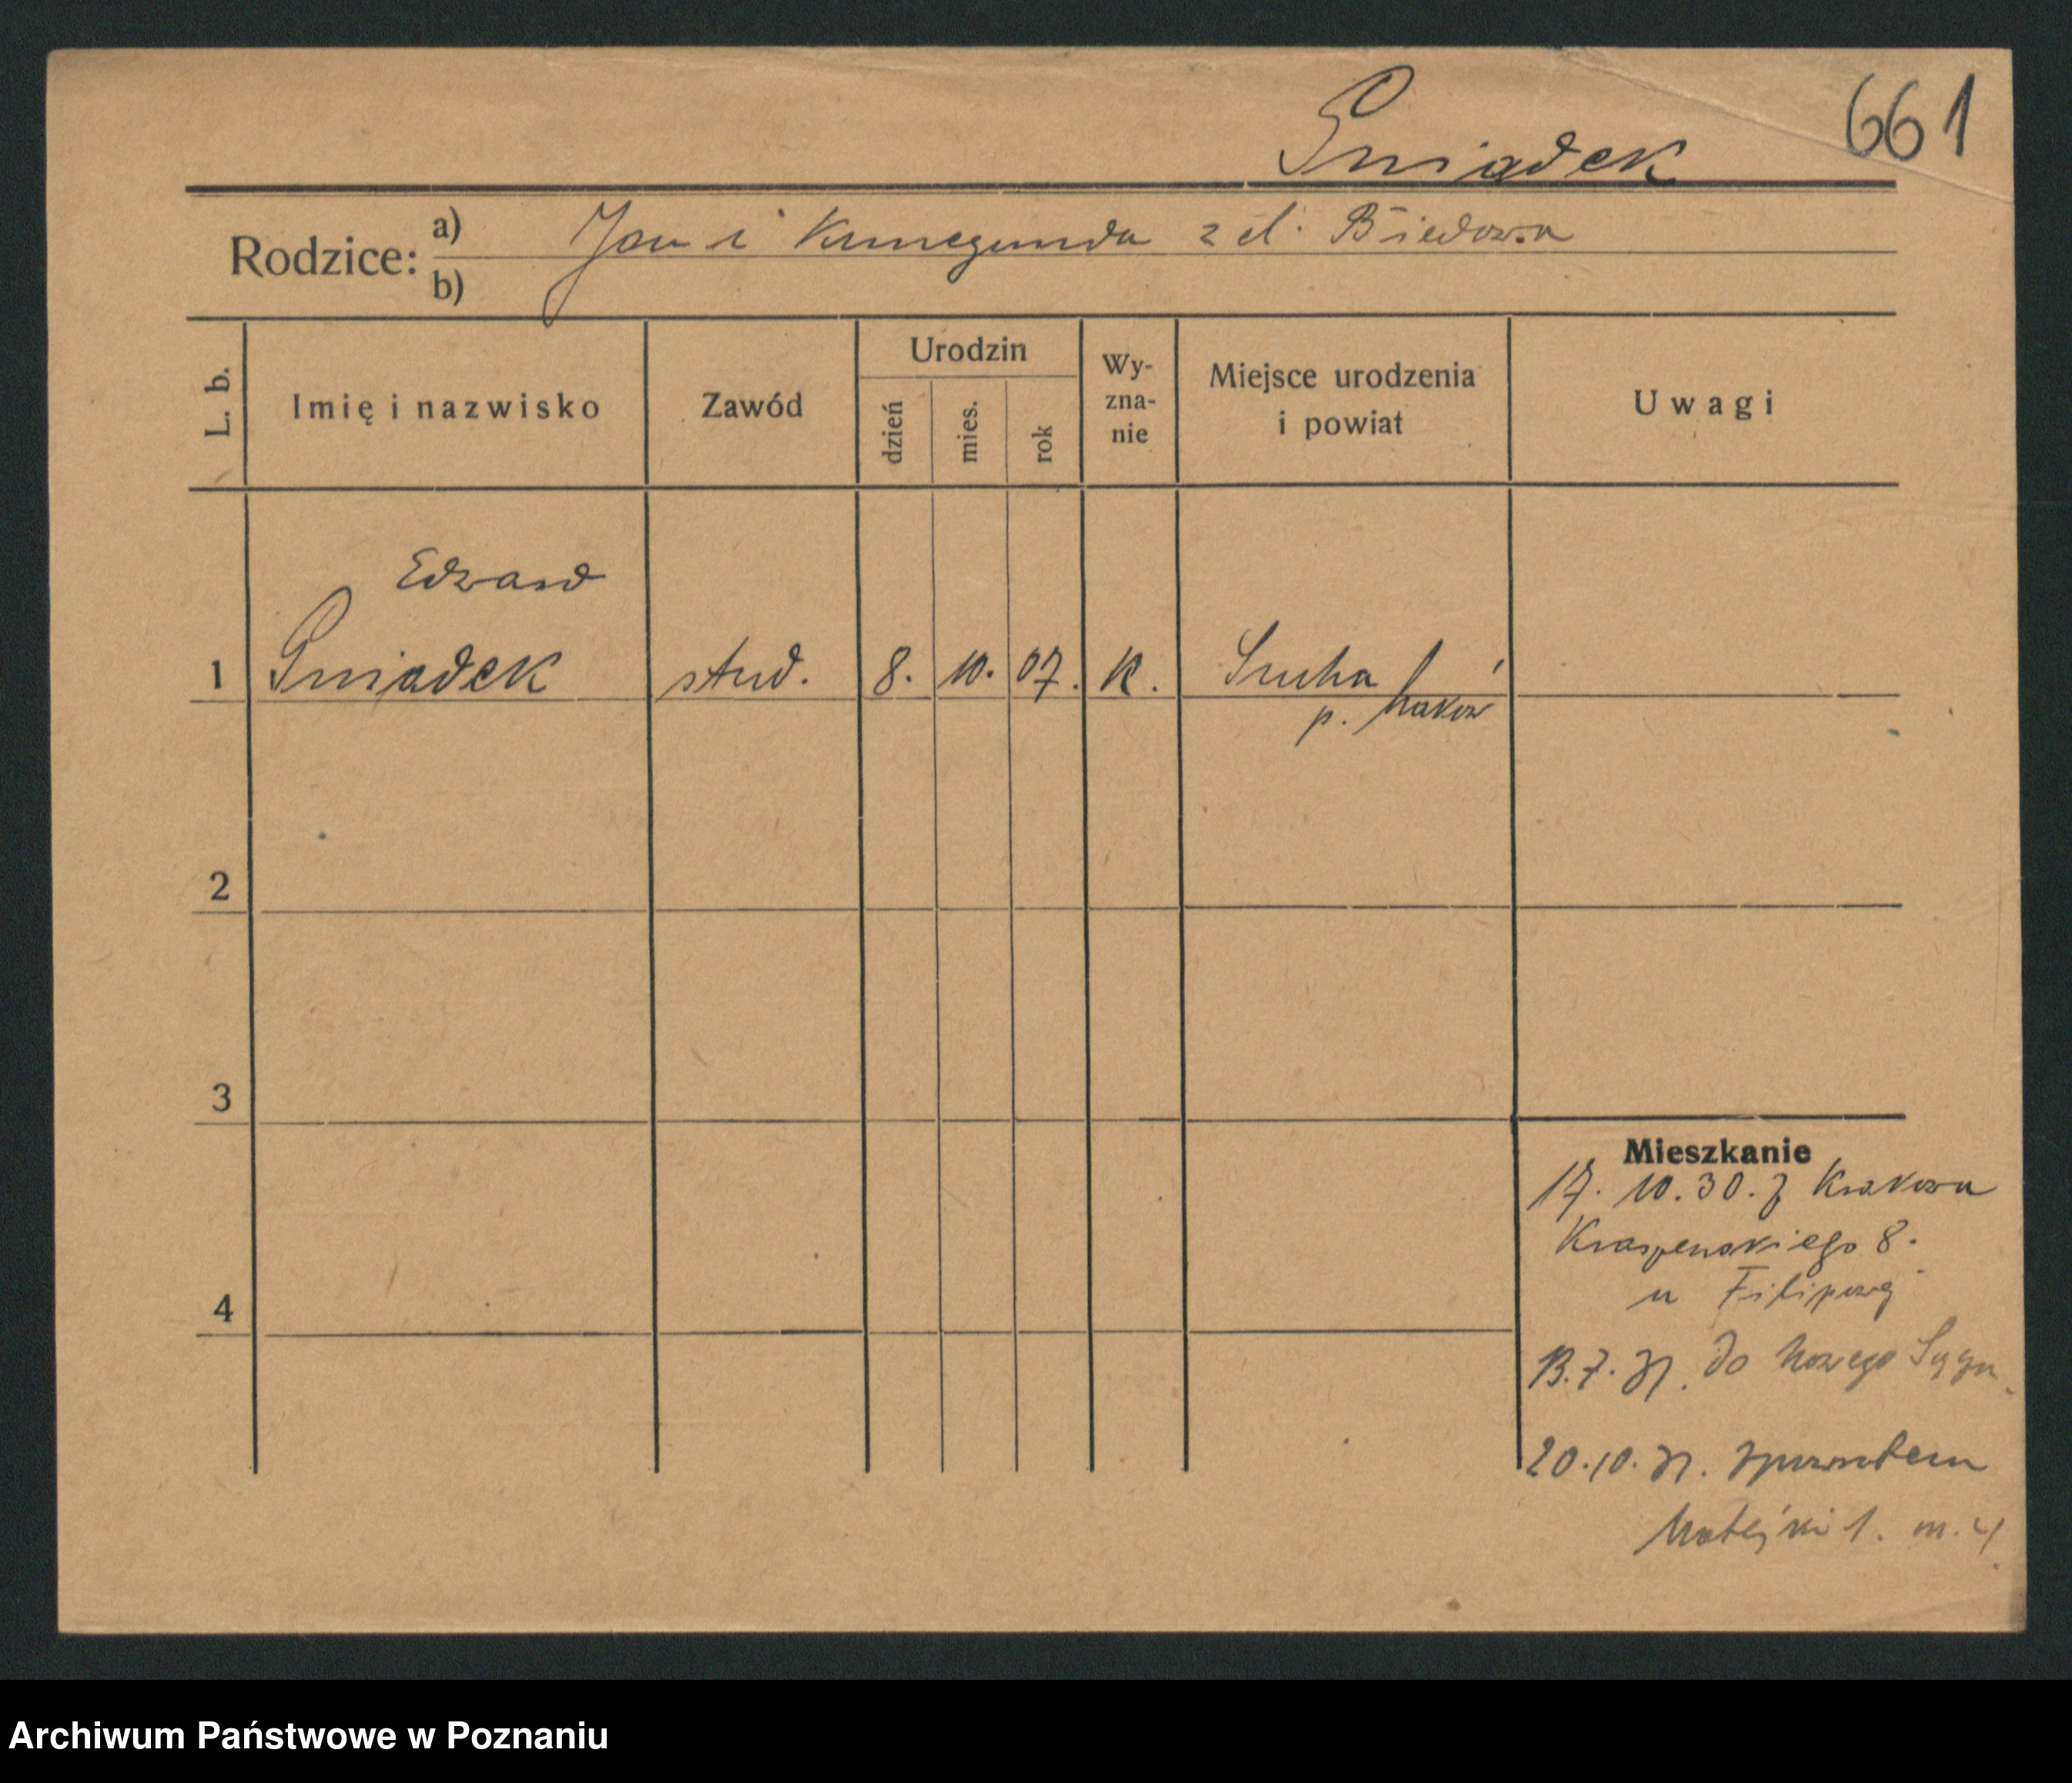 661
Gniadek
Rodzice: a) Jan i Kunegunda z d. Biedowa
b)
L. b.
Imię i nazwisko
Zawód
Urodzin
dzień
mies.
rok
Wy-
zna-
nie
Miejsce urodzenia
i powiat
Uwagi
Edward
1 Gniadek stud. 8. 10. 07. k. Sucha
p. Maków
2
3
4
Mieszkanie
17. 10. 30. z Krakowa
Kraszewskiego 8.
u Filipową
13. 7. 31. do Nowego Sącza
20. 10. 31. z powrotem
Matejki 1. m. 4
Archiwum Państwowe w Poznaniu